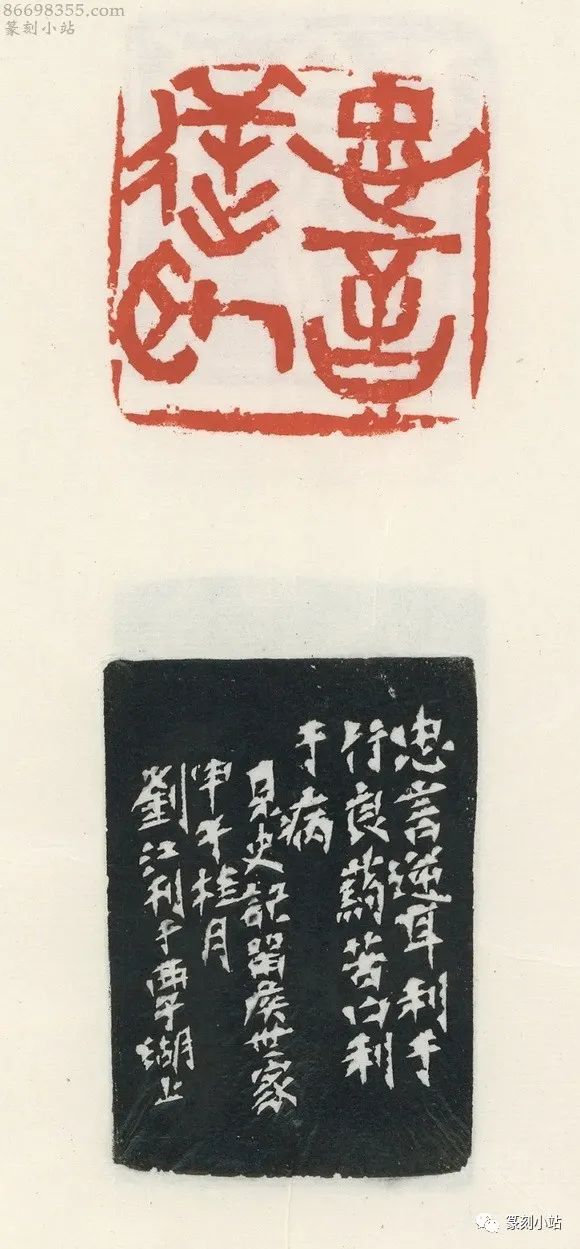 86698355.com
篆刻小站
忠言
逆耳
忠言逆耳利于
行良藥苦口利
于病
見史記畱侯世家
甲午桂月
劉江刻于西子湖上
篆刻小站